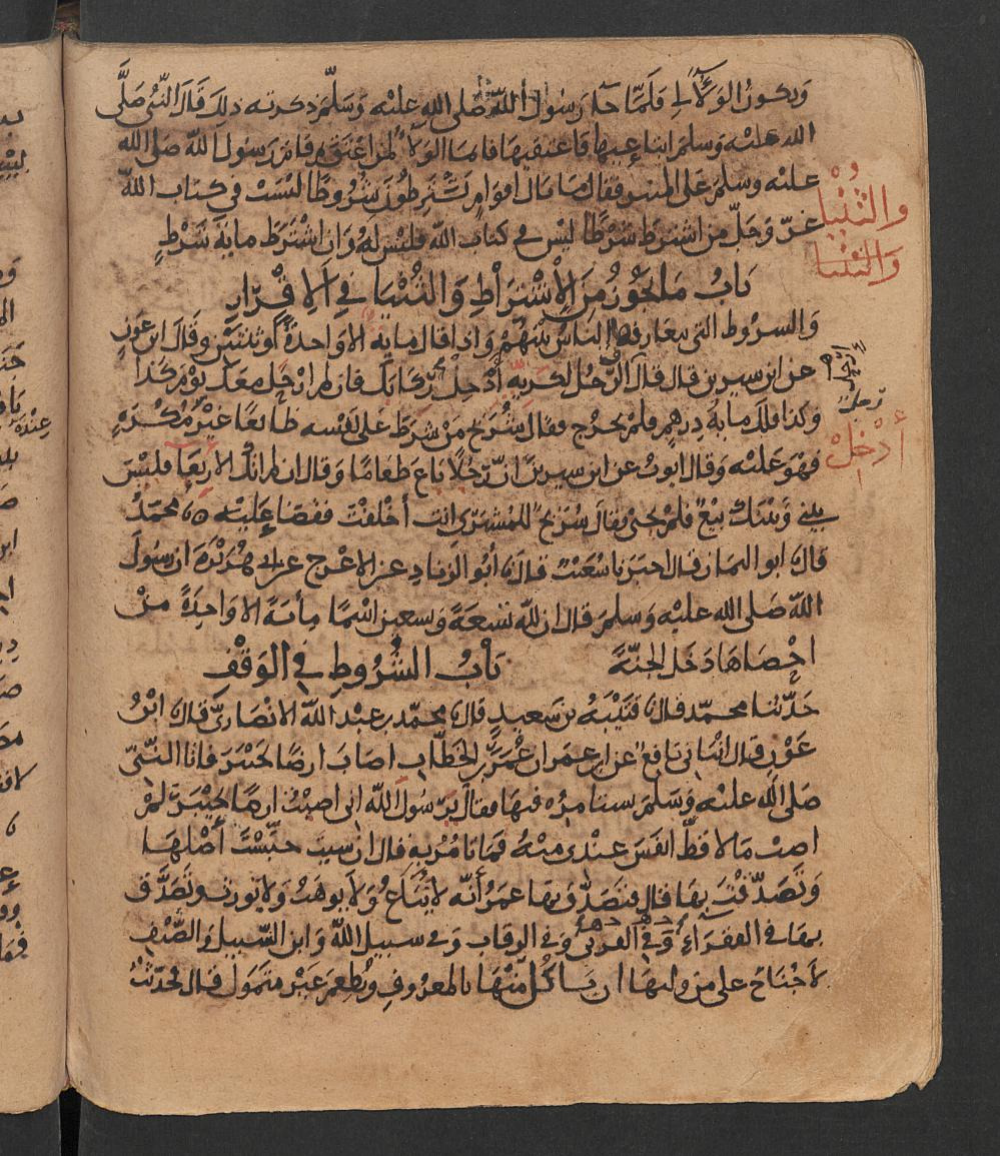 ويكون الولاء لي فلما جاء رسول الله صلى الله عليه وسلم ذكرته ذلك قال النبي صلى
الله عليه وسلم ابتاعيها فاعتقيها فانما الولاء لمن اعتق ثم قام رسول الله صلى الله
عليه وسلم على المنبر فقال ما بال اقوام يشترطون شروطا ليست في كتاب الله
عز وجل من اشترط شرطا ليس في كتاب الله فليس له وان اشترط مائة شرط
باب ما يجوز من الاشتراط والثنيا في الاقرار
والشروط التي يتعارفها الناس بينهم واذا قال مايه الا واحدة او ثنتين وقال ابن عون
عن ابن سيرين قال قال الرجل لكريه أدخل ركابك فان لم ارحل معك يوم كذا
وكذا فلك مايه درهم فلم يخرج فقال شريح من شرط على نفسه طائعا غير مكره
فهو عليه وقال ايوب عن ابن سيرين ان رجلا باع طعاما وقال ان لم اتك الاربعا فليس
بيني وبينك بيع فلم يجئ فقال شريح للمشتري انت أخلفت فقضا عليه نا محمد
قال نا ابو اليمان قال اخبرنا شعيب قال نا أبو الزناد عن الاعرج عن ابي هريرة ان رسول
الله صلى الله عليه وسلم قال ان لله تسعة وتسعين اسما مائة الا واحدة من
احصاها دخل الجنة باب الشروط في الوقف
حدثنا محمد قال نا قتيبه بن سعيد قال نا محمد بن عبد الله الانصاري قال نا ابن
عون قال انبانى نافع عن ابن عمر ان عمر بن الخطاب اصاب ارضا بخيبر فاتا النبي
صلى الله عليه وسلم يستامره فيها فقال يرسول الله انى اصبت ارضا بخيبر لم
اصب مالا قط انفس عندى منه فما تامر به قال ان شيت حبست أصلها
وتصدقت بها قال فتصدق بها عمر أنه لا يباع ولا يوهب ولا يورث وتصدق
بها في الفقراء وفي القربى وفي الرقاب وفي سبيل الله وابن السبيل والضيف
لا جناح على من وليها ان يأكل منها بالمعروف ويطعم غير متمول قال فحدثت
والثنيا
والثنيا
أدخل